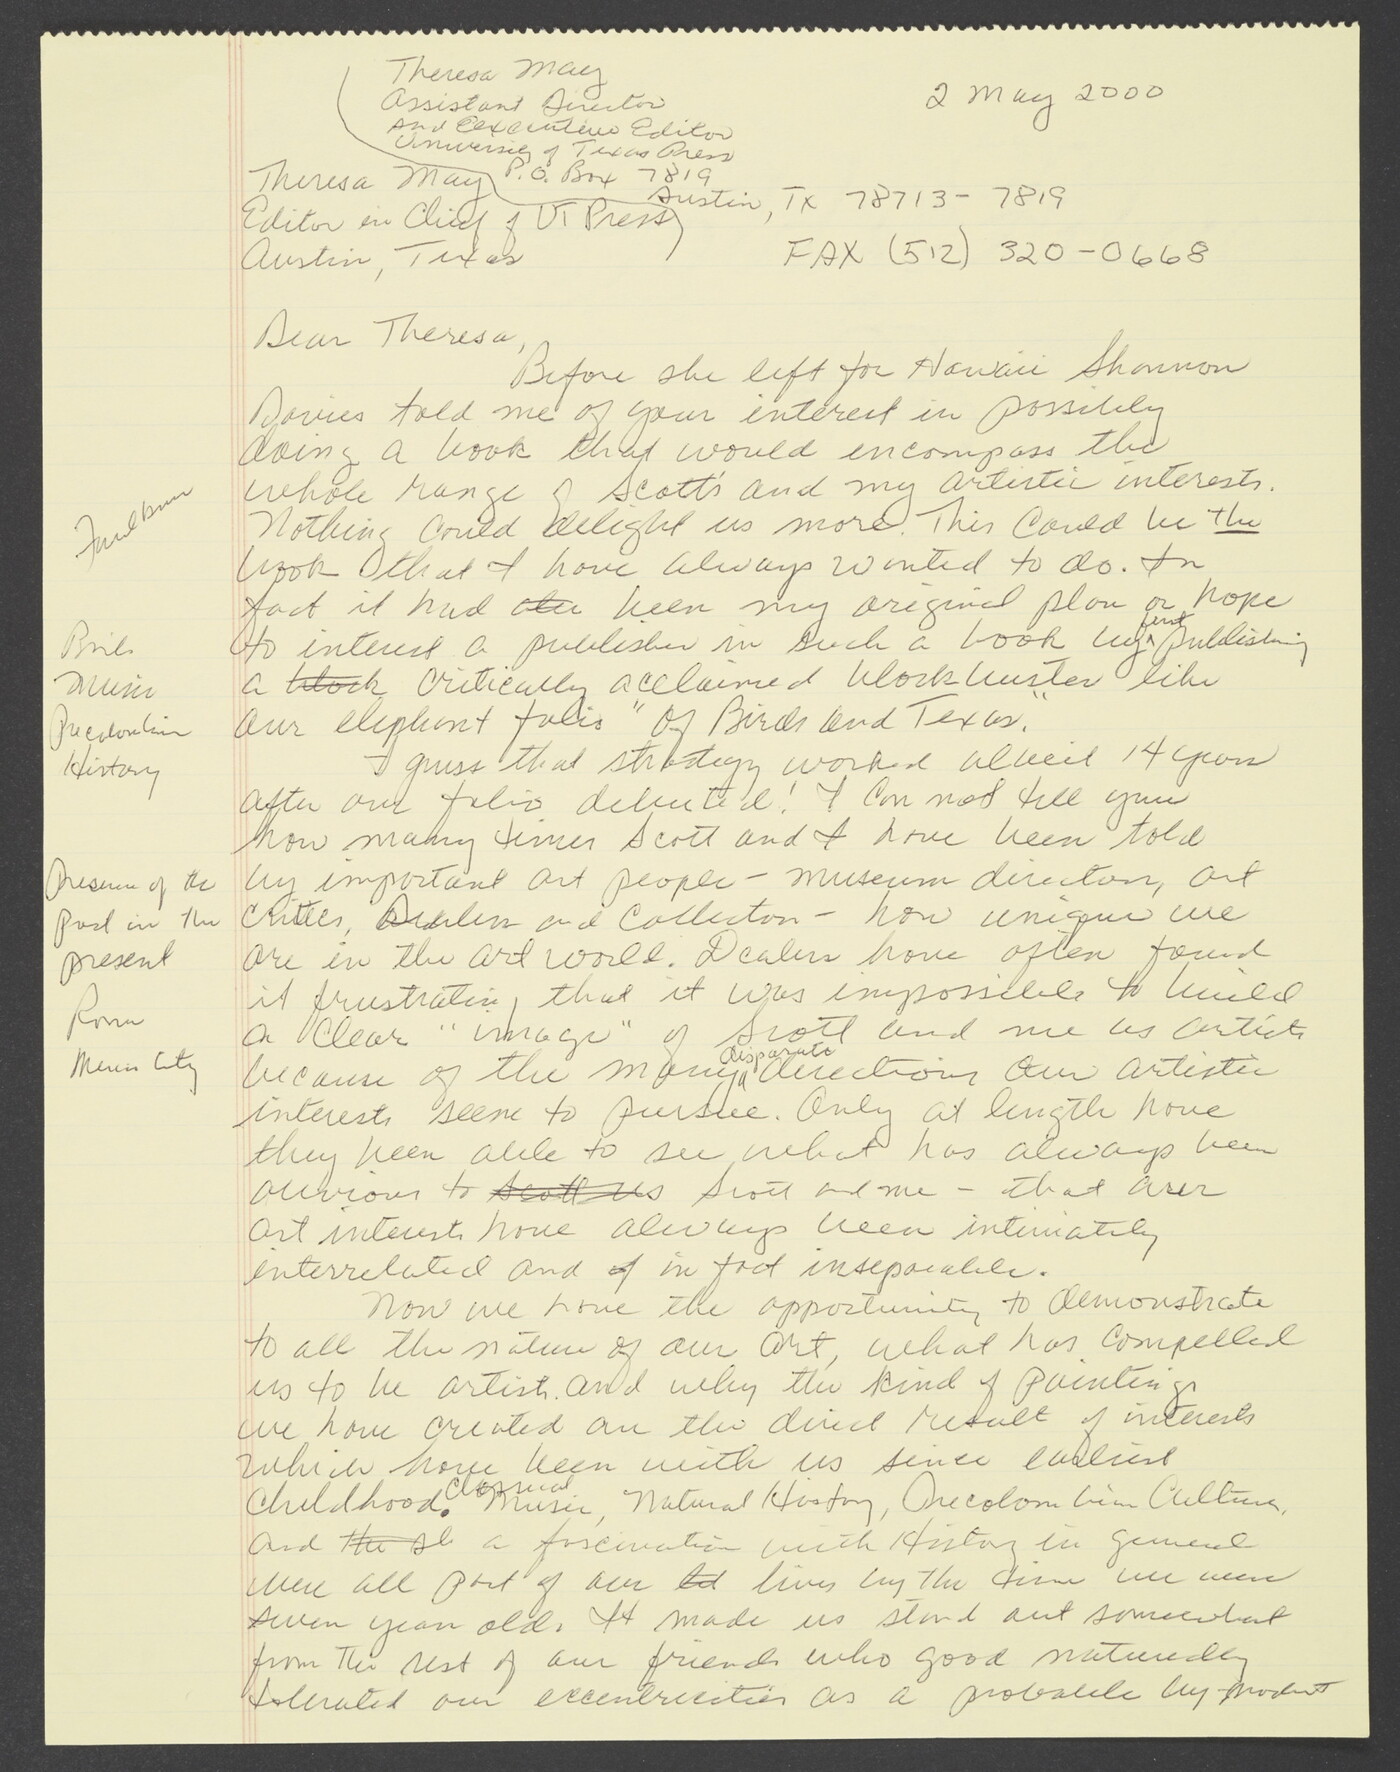 Theresa May
Assistant Director
and Executive Editor
University of Texas Press
P.O. Box 7819
Austin, Tx 78713-7819
2 May 2000
Theresa May
Editor in Chief of UT Press
Austin, Texas
FAX (512) 320-0668
Dear Theresa,
Before she left for Hawaii Shannon
Davies told me of your interest in possibly
doing a book that would encompass the
whole range of Scott's and my artistic interests.
Nothing could delight us more. This could be the
book that I have always wanted to do. In
fact it had been my original plan or hope
to interest a publisher in such a book by first publishing
a block critically acclaimed blockbuster like
our elephant folio "Of Birds and Texas."
I guess that strategy worked albeit 14 years
after our folio debuted! I can not tell you
how many times Scott and I have been told
by important art people - museum directors, art
critics, Dealers and collectors - how unique we
are in the art world. Dealers have often found
it frustrating that it was impossible to build
a clear "image" of Scott and me as artists
because of the many disparate directions our artistic
interests seem to pursue. Only at length have
they been able to see what has always been
obvious to Scott us Scott and me - that our
art interests have always been intimately
interrelated and of in fact inseparable.
Now we have the opportunity to demonstrate
to all the nature of our art, what has compelled
us to be artists and why the kind of paintings
we have created are the direct result of interests
which have been with us since earliest
childhood. Classical Music, Natural History, Precolombian Culture,
and the a fascination with History in general
were all part of our lives by the time we were
seven years old. It made us stand out somewhat
from the rest of our friends who good naturedly
tolerated our eccentricities as a probable by-product
Faulkner
Birds
Music
Precolombian
History
Presence of the
past in the
present
Roma
Mexico City